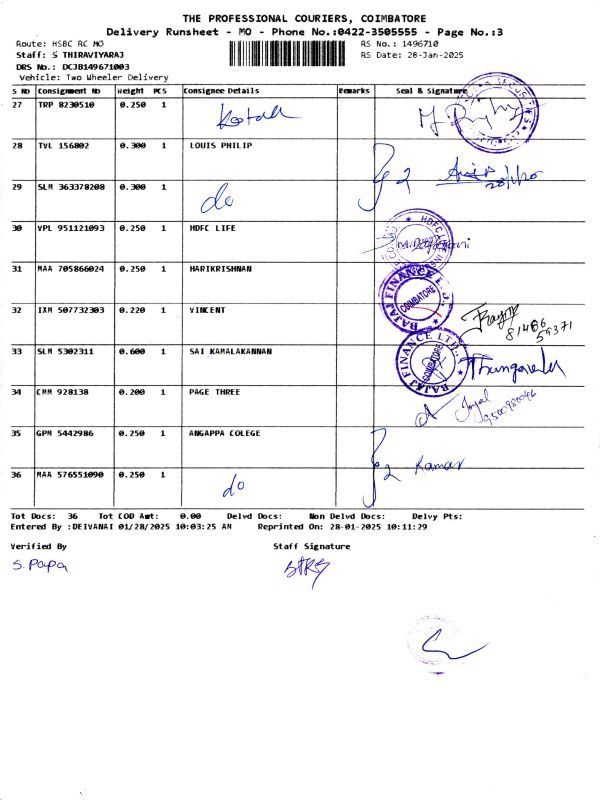 THE PROFESSIONAL COURIERS, COIMBATORE
Delivery Runsheet - MO - Phone No.:0422-3505555 - Page No.:3
Route: HSBC RC MO RS No.: 1496710
Staff: S THIRAVIYARAJ RS Date: 28-Jan-2025
DRS No.: DCJB149671003
Vehicle: Two Wheeler Delivery
S No Consignment No Weight PCS Consignee Details Remarks Seal & Signature
27 TRP 8230510 0.250 1 Kotak
28 TVL 156802 0.300 1 LOUIS PHILIP
2
29 SLM 363378208 0.300 1 do
30 VPL 951121093 0.250 1 HDFC LIFE
31 MAA 705866024 0.250 1 HARIKRISHNAN
BAJAJ FINANCE LTD. COIMBATORE
32 IXM 507732303 0.220 1 VINCENT
81486
59371
33 SLM 5302311 0.600 1 SAI KAMALAKANNAN
BAJAJ FINANCE LTD. COIMBATORE
34 CMM 928138 0.200 1 PAGE THREE
35 GPM 5442986 0.250 1 ANGAPPA COLEGE
2 Kamar
36 MAA 576551090 0.250 1 do
Tot Docs: 36 Tot COD Amt: 0.00 Delvd Docs: Non Delvd Docs: Delvy Pts:
Entered By :DEIVANAI 01/28/2025 10:03:25 AM Reprinted On: 28-01-2025 10:11:29
Verified By Staff Signature
S. Papa